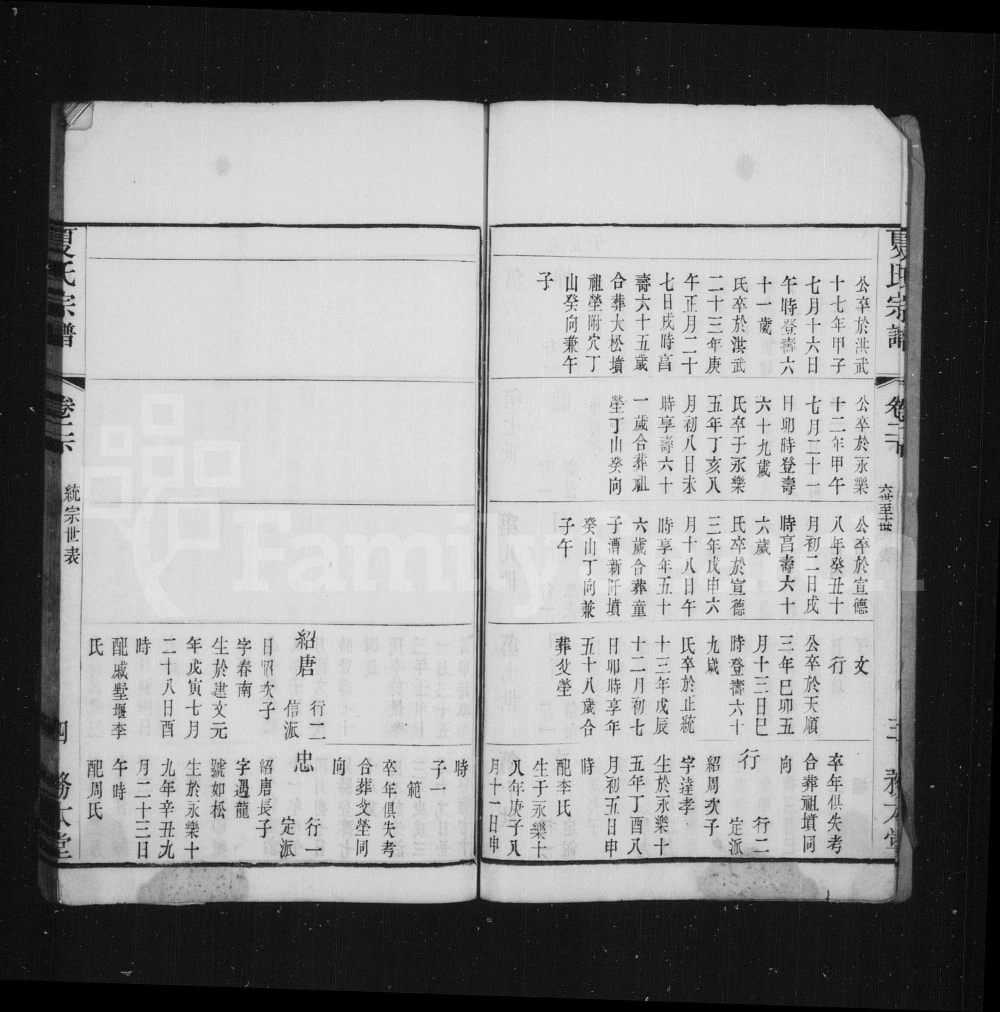 夏氏宗譜
卷二
六世至十世
三
務本堂
公卒於洪武
十七年甲子
七月十六日
午時登壽六
十一歲
氏卒於洪武
二十三年庚
午正月二十
七日戌時享
壽六十五歲
合葬大松墳
祖塋附穴丁
山癸向兼午
子
公卒於永樂
十二年甲午
七月二十一
日卯時登壽
六十九歲
氏卒于永樂
五年丁亥八
月初八日未
時享壽六十
一歲合葬祖
塋丁山癸向
公卒於宣德
八年癸丑十
月初二日戌
時享壽六十
六歲
氏卒於宣德
三年戊申六
月十八日午
時享年五十
六歲合葬童
子漕新阡墳
癸山丁向兼
子午
子文
行
公卒於天順
三年巳卯五
月十三日巳
時登壽六十
九歲
氏卒於正統
十三年戊辰
十二月初七
日卯時享年
五十八歲合
葬父塋
卒年俱失考
合葬祖墳同
向
行 行二
定派
紹周次子
字達孝
生於永樂十
五年丁酉八
月初五日申
時
配李氏
生于永樂十
八年庚子八
月十一日申
時
子一
範
卒年俱失考
合葬父塋同
向
紹唐 行二
信派
日昭次子
字春南
生於建文元
年戊寅七月
二十八日酉
時
配戚墅堰李
氏
忠 行一
定派
紹唐長子
字遇龍
號如松
生於永樂十
九年辛丑九
月二十三日
午時
配周氏
夏氏宗譜
卷二
統宗世表
四
務本堂